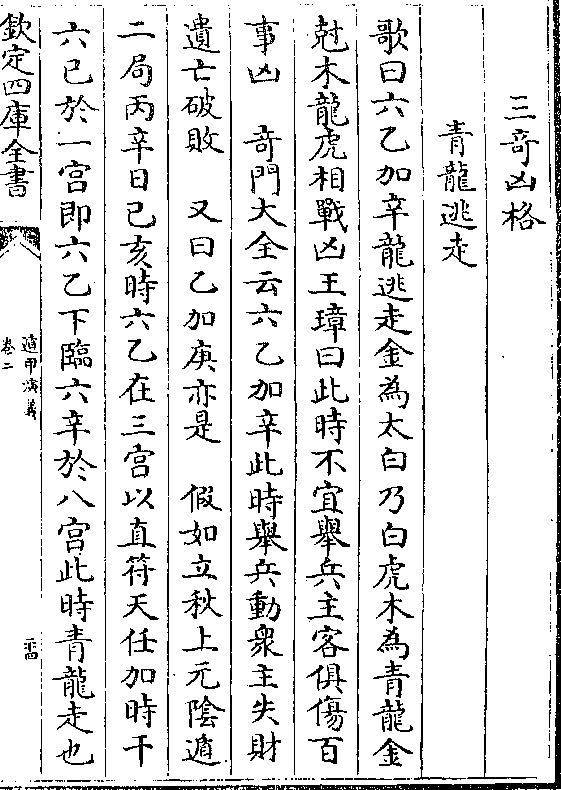 三竒凶格
青龍逃走
歌曰六乙加辛龍逃走金為太白乃白虎木為青龍金
尅木龍虎相戰凶王璋曰此時不宜舉兵主客俱傷百
事凶　竒門大全云六乙加辛此時舉兵動衆主失財
遺亡破敗　又曰乙加庚亦是　假如立秋上元陰遁
二局丙辛日己亥時六乙在三宫以直符天任加時干
六己於一宫即六乙下臨六辛於八宫此時青龍走也
欽定四庫全書
遁甲演義
卷二
二十四